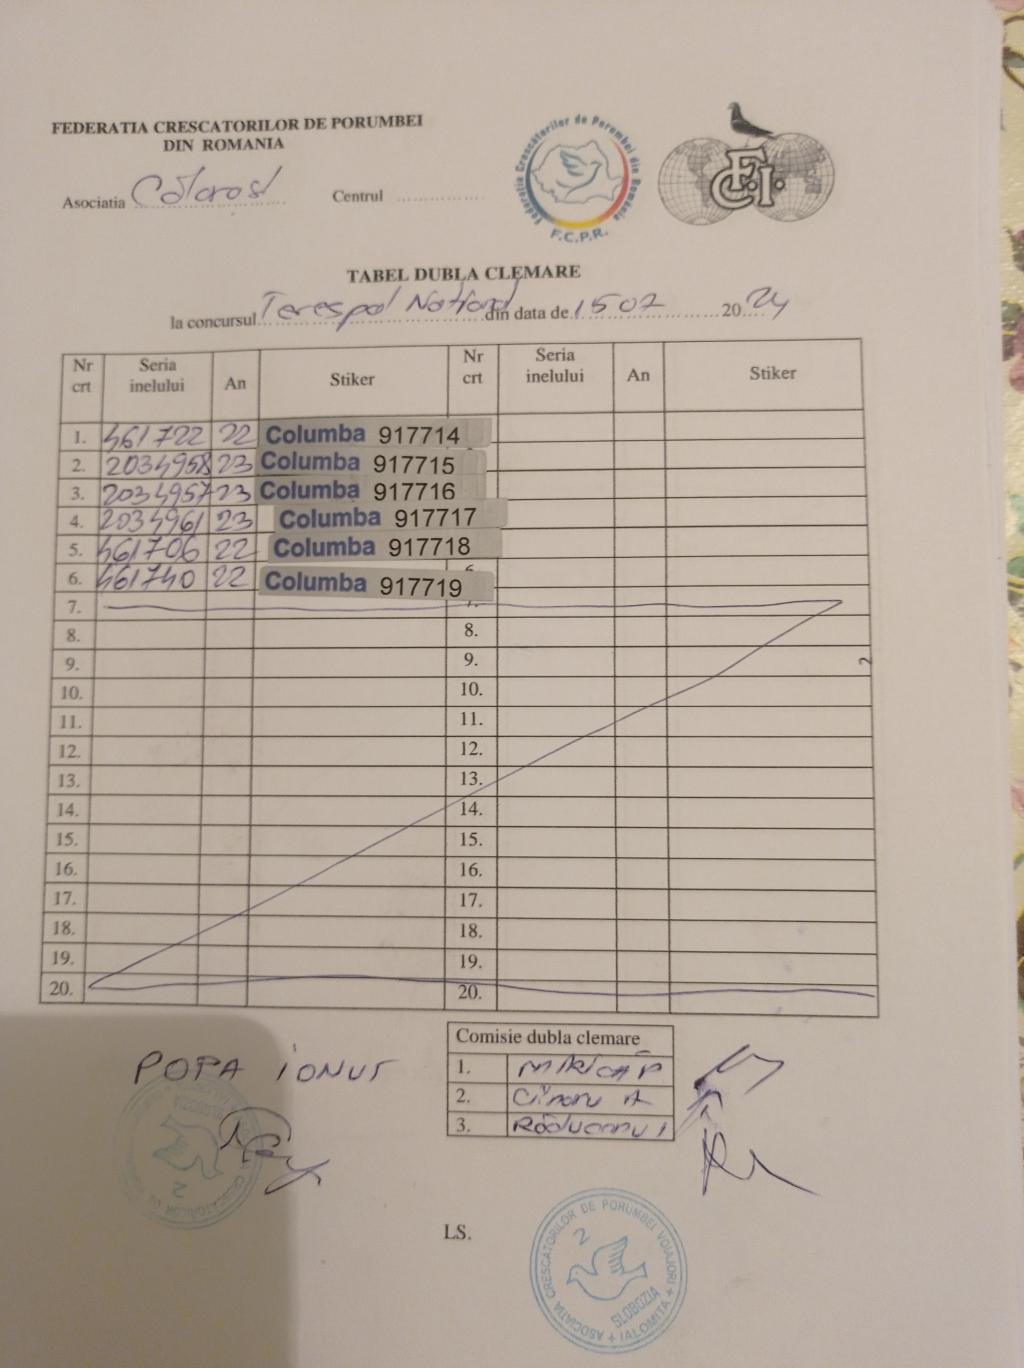 FEDERATIA CRESCATORILOR DE PORUMBEI
DIN ROMANIA
Federatia Crescătorilor de Porumbei din România
F.C.P.R.
F.C.I.
Asociatia Călărași Centrul
TABEL DUBLA CLEMARE
la concursul Terespol Național din data de 15 07 2024
Nr crt Seria inelului An Stiker Nr crt Seria inelului An Stiker
1. 461722 22 Columba 917714
2. 2034958 23 Columba 917715
3. 2034957 23 Columba 917716
4. 2034961 23 Columba 917717
5. 461706 22 Columba 917718
6. 461740 22 Columba 917719
7. 7.
8. 8.
9. 9. 2
10. 10.
11. 11.
12. 12.
13. 13.
14. 14.
15. 15.
16. 16.
17. 17.
18. 18.
19. 19.
20. 20.
POPA IONUT
Comisie dubla clemare
1.
2.
3. Răducanu I
LS.
ASOCIATIA CRESCATORILOR DE PORUMBEI VOIAJORI + IALOMITA +
2
SLOBOZIA